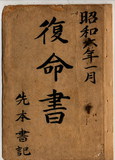 昭和六年一月
復命書
先本書記